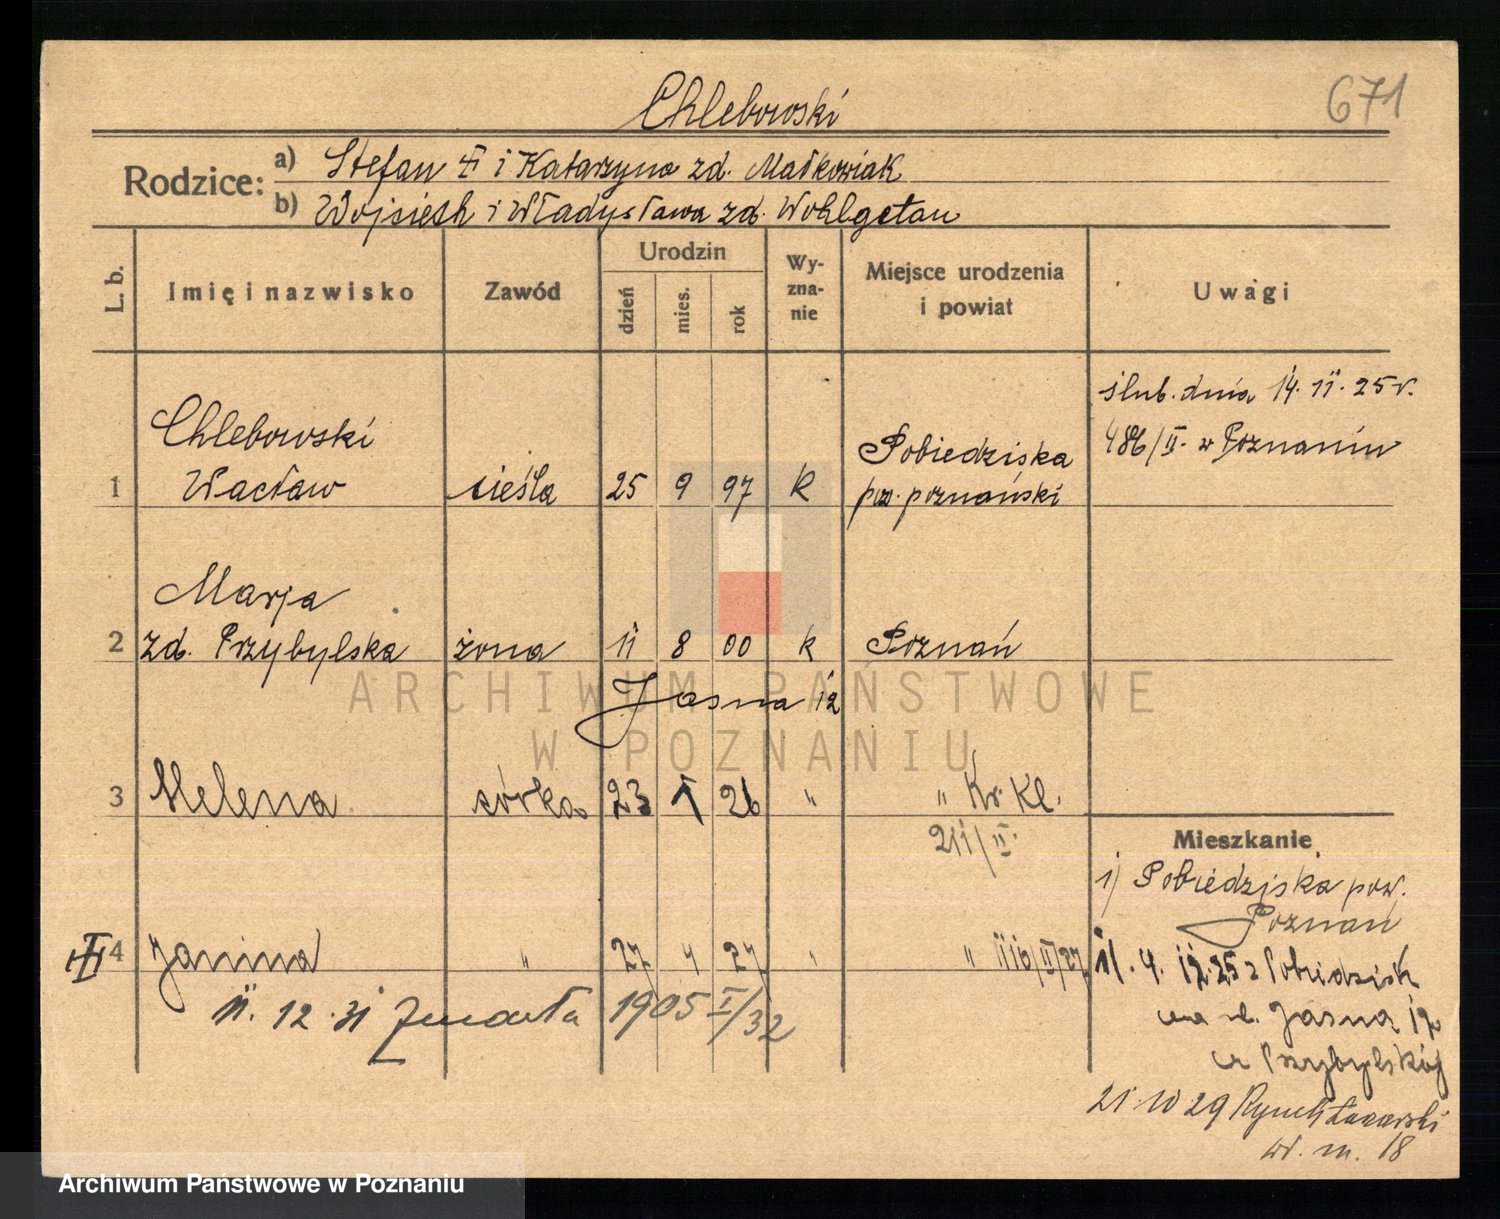 671
Chlebowski
Rodzice:
a) Stefan i Katarzyna zd. Małkowiak
b) Wojciech i Władysława zd. Wohlgetan
L. b.
Imię i nazwisko
Zawód
Urodzin
dzień
mies.
rok
Wy-
zna-
nie
Miejsce urodzenia
i powiat
Uwagi
ślub. dnia 14. 11. 25 r.
486/II. w Poznaniu
Chlebowski
Pobiedziska
1 Wacław cieśla 25 9 97 k pow. poznański
Marja
2 zd. Przybylska żona 11 8 00 k Poznań
Jasna 12
3 Helena córka 23 1 26 " " Kr. Kl.
211/II.
Mieszkanie
1) Pobiedziska pow.
Poznań
4 Janina " 27 4 27 " " 1116/II/27
4. 12. 25 z Pobiedzisk
na ul. Jasna 12
u Przybylskiej
11. 12. 31 zmarła 1905 I/32
21 10 29 Rynek Łazarski
18
ARCHIWUM PAŃSTWOWE
W POZNANIU
Archiwum Państwowe w Poznaniu